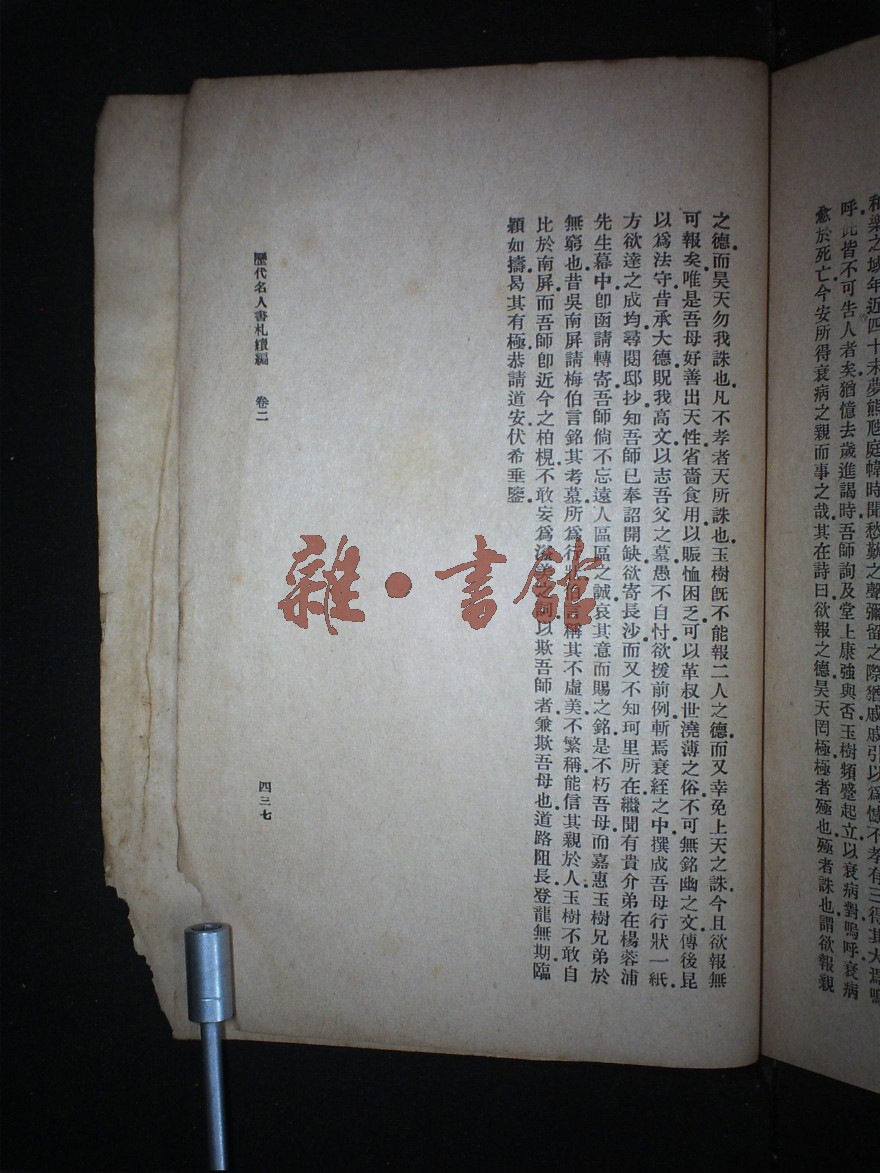 和樂之域年近四十未夢熊虺庭幃時聞愁歎之聲彌留之際猶戚戚引以爲憾不孝有三得其大焉嗚
呼此皆不可告人者矣猶憶去歲進謁時吾師詢及堂上康強與否玉樹頻蹙起立以衰病對嗚呼衰病
愈於死亡今安所得衰病之親而事之哉其在詩曰欲報之德昊天罔極極者殛也殛者誅也謂欲報親
之德而昊天勿我誅也凡不孝者天所誅也玉樹旣不能報二人之德而又幸免上天之誅今且欲報無
可報矣唯是吾母好善出天性省嗇食用以賑恤困乏可以革叔世澆薄之俗不可無銘幽之文傳後昆
以爲法守昔承大德貺我高文以志吾父之墓愚不自忖欲援前例斬焉衰絰之中撰成吾母行狀一紙
方欲達之成均尋閱邸抄知吾師已奉詔開缺欲寄長沙而又不知珂里所在繼聞有貴介弟在楊蓉浦
先生幕中卽函請轉寄吾師倘不忘遠人區區之誠哀其意而賜之銘是不朽吾母而嘉惠玉樹兄弟於
無窮也昔吳南屏請梅伯言銘其考墓所爲行狀伯言稱其不虛美不繁稱能信其親於人玉樹不敢自
比於南屏而吾師卽近今之柏梘不敢妄爲溢美之詞以欺吾師者兼欺吾母也道路阻長登龍無期臨
穎如擣曷其有極恭請道安伏希垂鑒
歷代名人書札續編 卷二 四三七
雜·書館